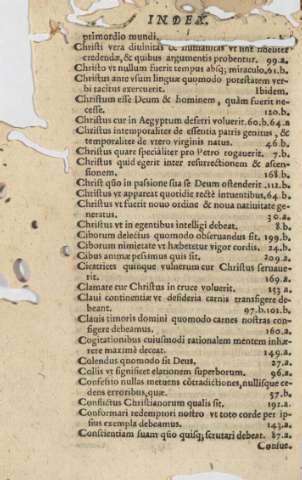 INDEX.
primordio mundi.
Christi vera diuinitas & humanitas vt sint
credendæ, & quibus argumentis probentur. 99.a.
Christo vt nullum fuerit tempus absq; miraculo, 61.b.
Christus ante vsum linguæ quomodo potestatem ver-
bi tacitus exercuerit. Ibidem.
Christum esse Deum & hominem, quàm fuerit ne-
cesse. 120.b.
Christus cur in Aegyptum deferri voluerit. 60.b.64.a
Christus intemporaliter de essentia patris genitus, &
temporaliter de vtero virginis natus. 46.b.
Christus quare specialiter pro Petro rogauerit. 7.b.
Christus quid egerit inter resurrectionem & ascen-
sionem. 168.b.
Christ⁹ quo in passione sua se Deum ostenderit. 112.b.
Christus vt appareat quotidie rectè intuentibus, 64.b.
Christus vt fuerit nouo ordine & noua natiuitate ge-
neratus. 30.a.
Christus vt in egentibus intelligi debeat. 8.b.
Ciborum delectus quomodo obseruandus sit. 199.b.
Ciborum nimietate vt hæbetetur vigor cordis. 24.b.
Cibus animæ pessimus quis sit. 209.a.
Cicatrices quinque vulnerum cur Christus seruaue-
rit. 169.a.
Clamare cur Christus in cruce voluerit. 153 a.
Claui continentiæ vt desideria carnis transfigere de-
beant. 97.b.101.b.
Clauis timoris domini quomodo carnes nostras con-
figere debeamus. 160.a.
Cogitationibus cuiusmodi rationalem mentem inhæ-
rere maximè deceat. 149.a.
Colendus quomodo sit Deus. 27.a.
Collis vt significet elationem superborum. 96.a.
Confessio nullas metuens cōtradictiones, nullisque ce-
dens erroribus, quæ. 57.b.
Conflictus Christianorum qualis sit. 191.a.
Conformari redemptori nostro vt toto corde per ip-
sius exempla debeamus. 143.a.
Conscientiam suam quo quisq; scrutari debeat. 87.a.
Consue.